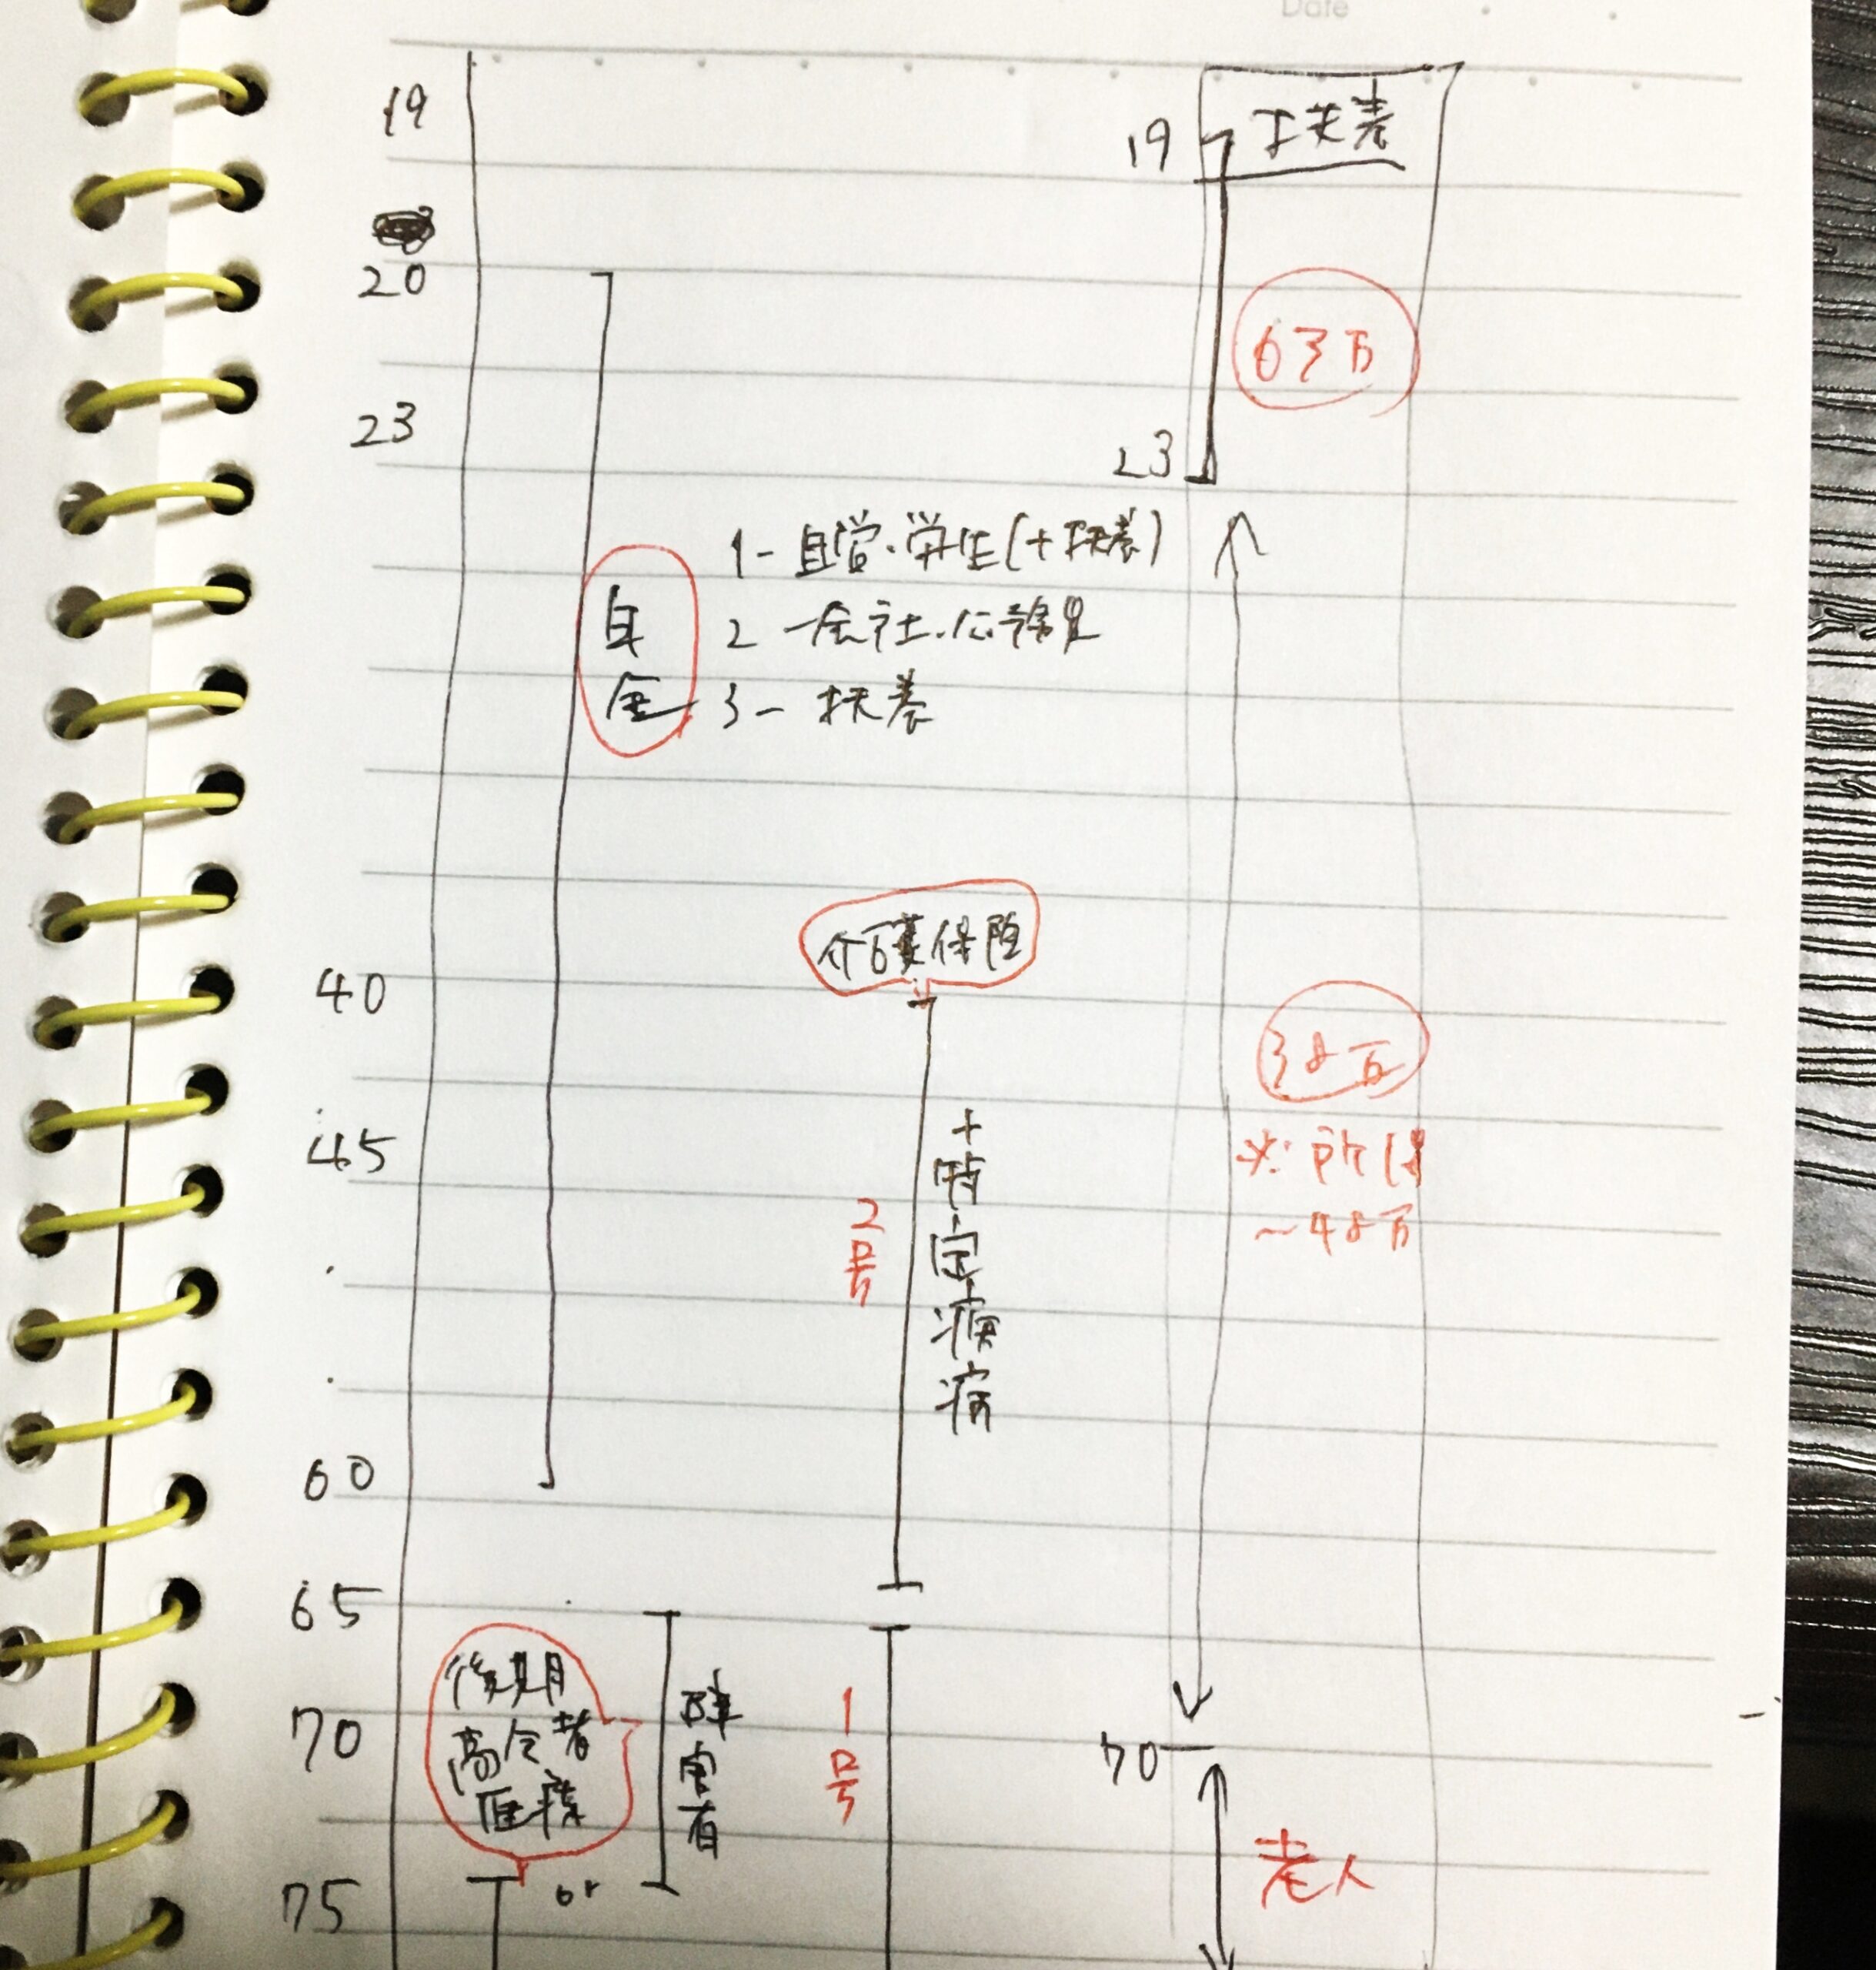 Date
19
20
23
40
45
60
65
70
75
19
扶養
63万
23
年金
1-自営・学生(+扶養)
2-会社・公務員
3-扶養
介護保険
2号
+特定疾病
38万
※所得
~48万
後期
高令者
医療
or
障害者
1号
70
老人